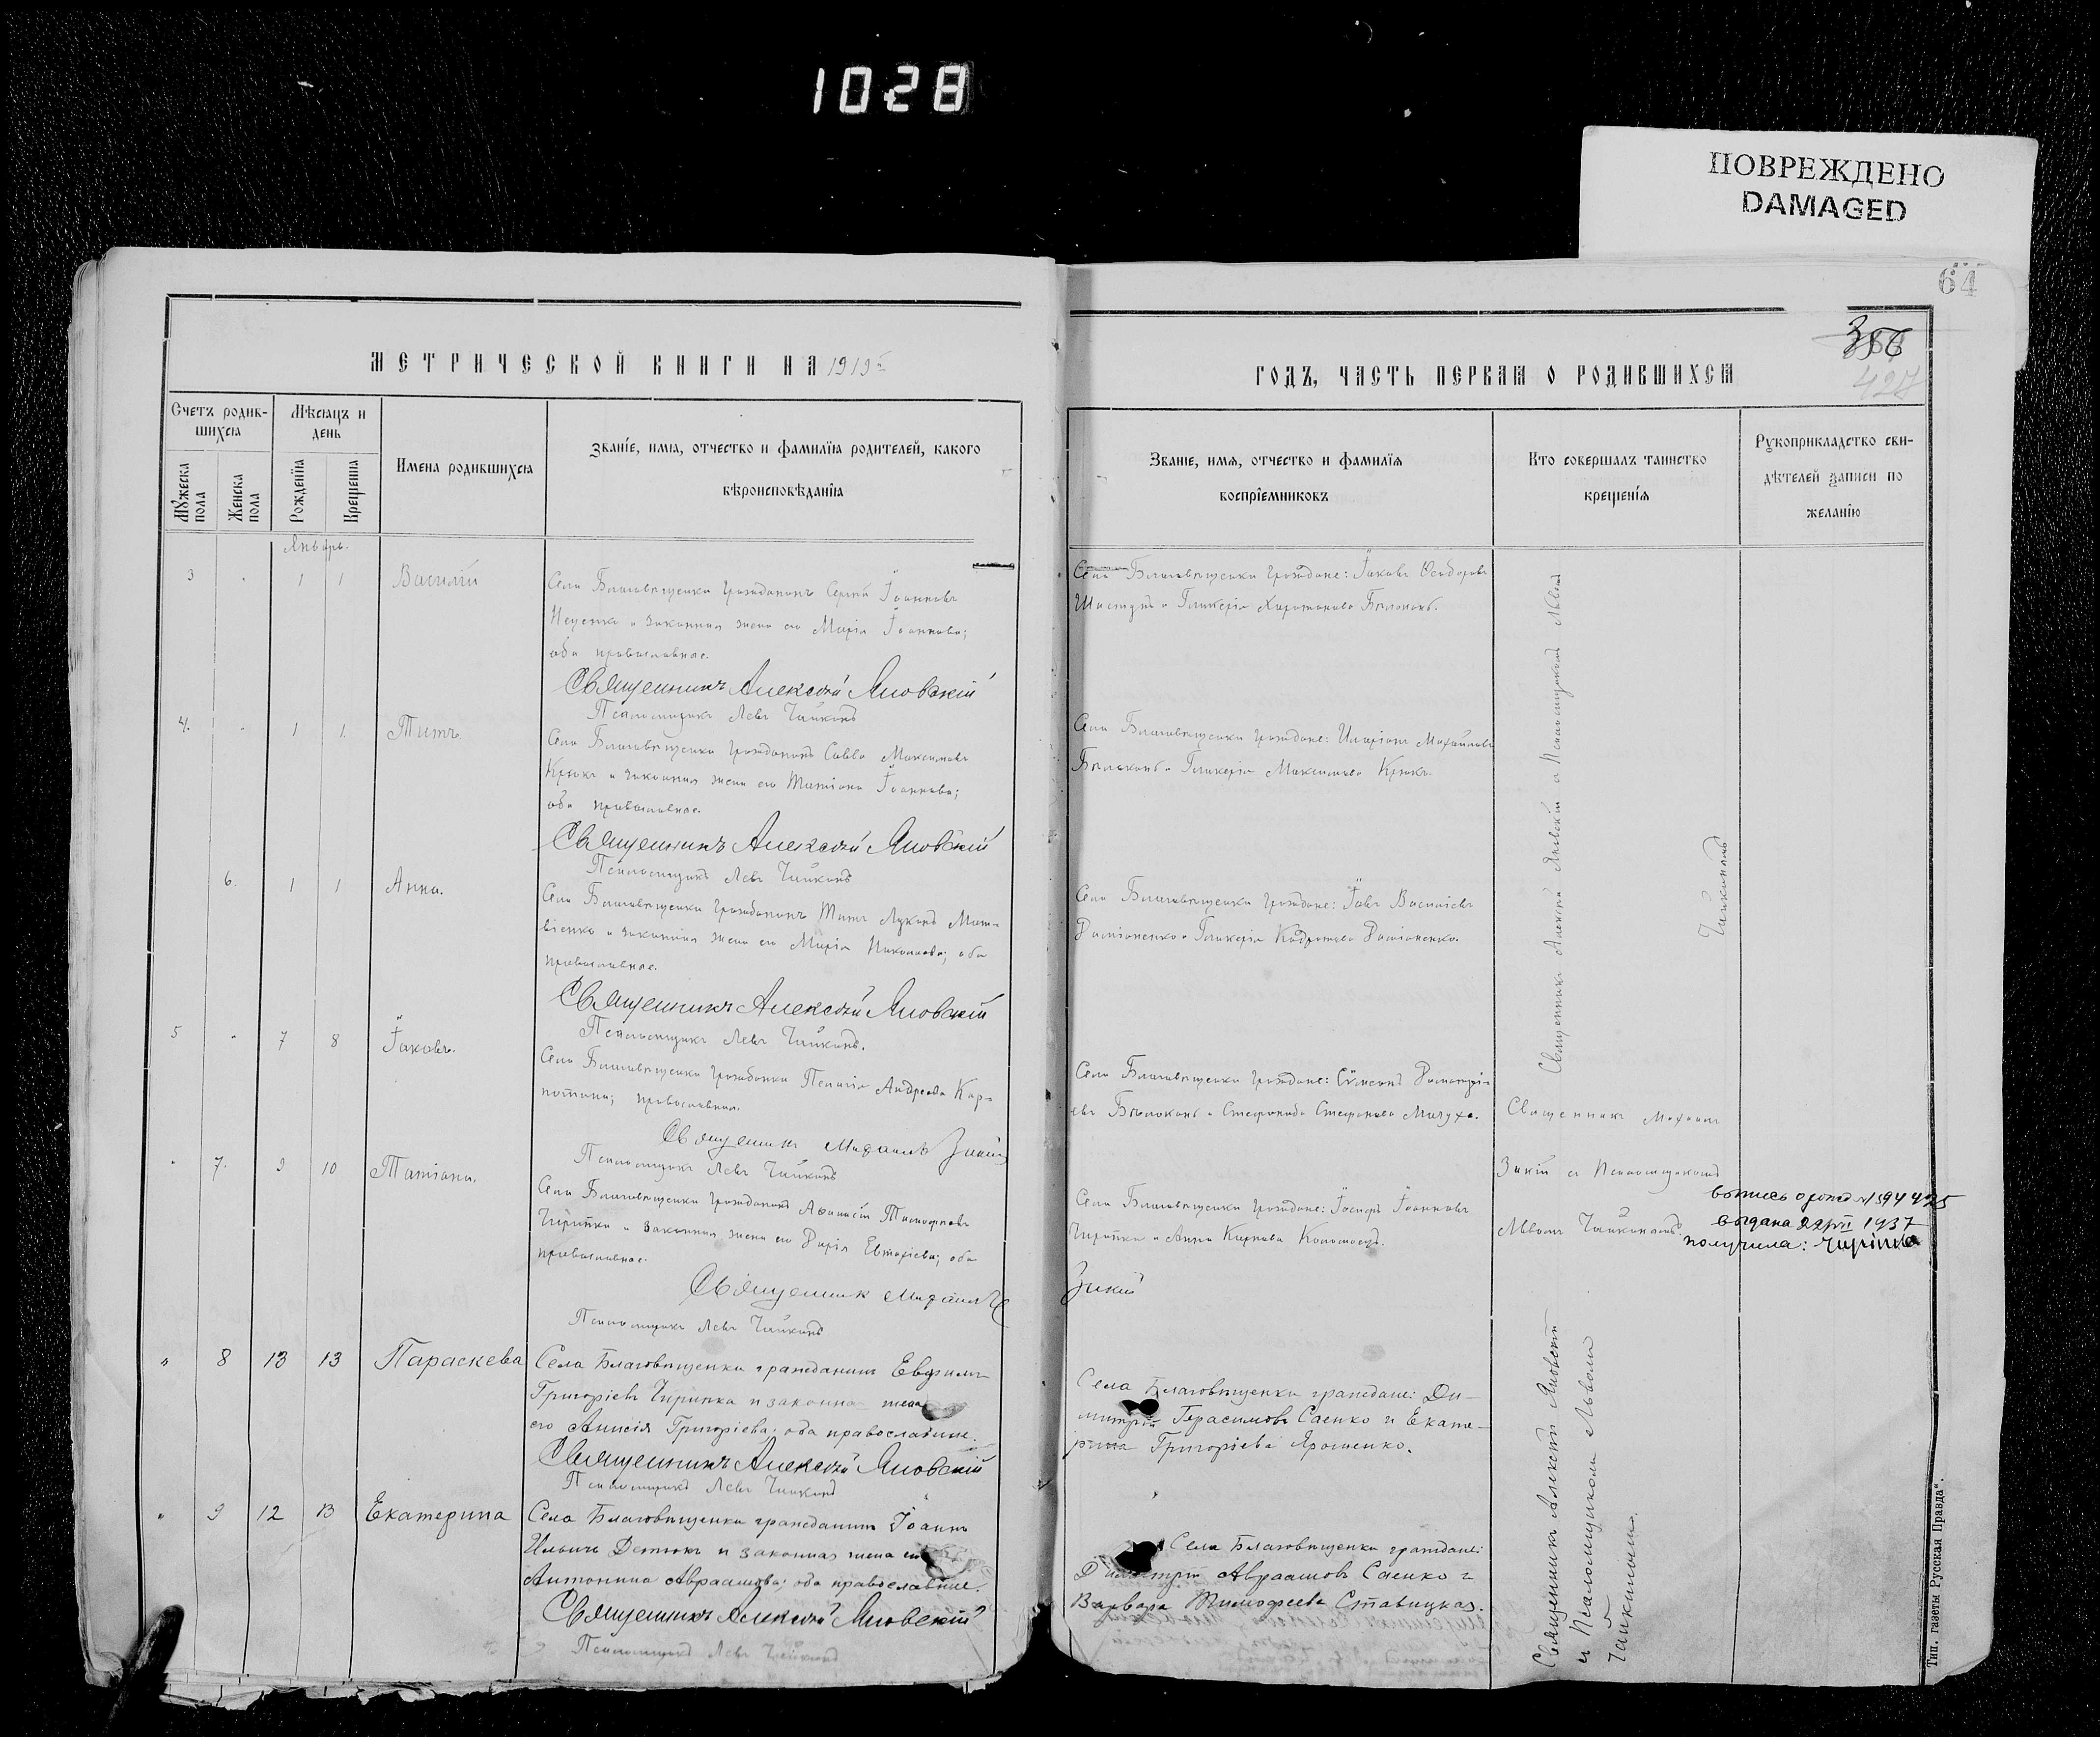 1028
ПОВРЕЖДЕНО
DAMAGED
64
356
МЕТРИЧЕСКОЙ КНИГИ НА 1919 г
Счетъ родив-
шихся
Мѣсяцъ и
день
Имена родившихся
Званіе, имя, отчество и фамилія родителей, какого
вѣроисповѣданія
Мужеска
пола
Женска
пола
Рожденія
Крещенія
Январь.
3 " 1 1 Василій
Села Благовѣщенки гражданинъ Сергій Іоанновъ
и законная жена его Марія Іоаннова;
оба православные.
Священникъ Алексѣй Яновскій
Псаломщикъ Левъ Чайкинъ
4. " 1 1. Титъ.
Села Благовѣщенки гражданинъ Савва Максимовъ
Крюкъ и законная жена его Татіана Іоаннова;
оба православные.
Священникъ Алексѣй Яновскій
Псаломщикъ Левъ Чайкинъ
6. 1 1 Анна.
Села Благовѣщенки гражданинъ Титъ Лукинъ Мат-
віенко и законная жена его Марія Николаева; оба
православные.
Священникъ Алексѣй Яновскій
Псаломщикъ Левъ Чайкинъ.
5 " 7 8 Іаковъ.
Села Благовѣщенки гражданка Пелагія Андреева Кар-
православная.
Священникъ Михаилъ Зикій
Псаломщикъ Левъ Чайкинъ
" 7. 9 10 Татіана.
Села Благовѣщенки гражданинъ Аѳанасій Тимофеевъ
Чирипка и законная жена его Дарія Евтихіева; оба
православные.
Священник Михаилъ
Псаломщикъ Левъ Чайкинъ
" 8 13 13 Параскева
Села Благовѣщенки гражданинъ Евфимъ
Григоріевъ Чирипка и законна жена
его Анисія Григоріева; оба православные.
Священникъ Алексѣй Яновскій
Псаломщикъ Левъ Чайкинъ
" 9 12 13 Екатерина
Села Благовѣщенки гражданинъ Іоаннъ
Ильичъ и законная жена его
Антонина Авраамова; оба православные.
Священникъ Алексѣй Яновскій
Псаломщикъ Левъ Чайкинъ
ГОДЪ, ЧАСТЬ ПЕРВАЯ О РОДИВШИХСЯ
Званіе, имя, отчество и фамилія
воспріемниковъ
Кто совершалъ таинство
крещенія
Рукоприкладство сви-
дѣтелей записи по
желанію
Села Благовѣщенки граждане: Іаковъ Ѳеодоровъ
Шастунъ и Гликерія Харитонова Бѣлоконь.
Села Благовѣщенки граждане: Иларіонъ Михайловъ
Бѣлоконь и Гликерія Максимова Крюкъ.
Села Благовѣщенки граждане: Іовъ Василіевъ
Даміоненко и Гликерія Даміоненко.
Села Благовѣщенки граждане: Сѵмеонъ Димитрі-
евъ Бѣлоконь и Стефанида Стефанова Мазуха.
Села Благовѣщенки граждане: Іосифъ Іоанновъ
Чирипка и Анна Карпова Коломоецъ.
Зикій
Села Благовѣщенки граждане: Ди-
митрій Герасимовъ Саенко и Екате-
рина Григоріева Ярошенко.
Села Благовѣщенки граждане:
Димитрій Авраамовъ Саенко и
Варвара Тимофеева Ставицкая.
Священникъ Алексѣй Яновскій и Псаломщикомъ Львомъ
Чайкинымъ
Священникъ Михаилъ
Зикій съ Псаломщикомъ
Львомъ Чайкинымъ.
выпись о рожд №
выдана 22/VII 1937
получила:
Священникъ Алексѣй Яновскій
и Псаломщикомъ Львомъ
Чайкинымъ.
Тип. газеты Русская Правда".